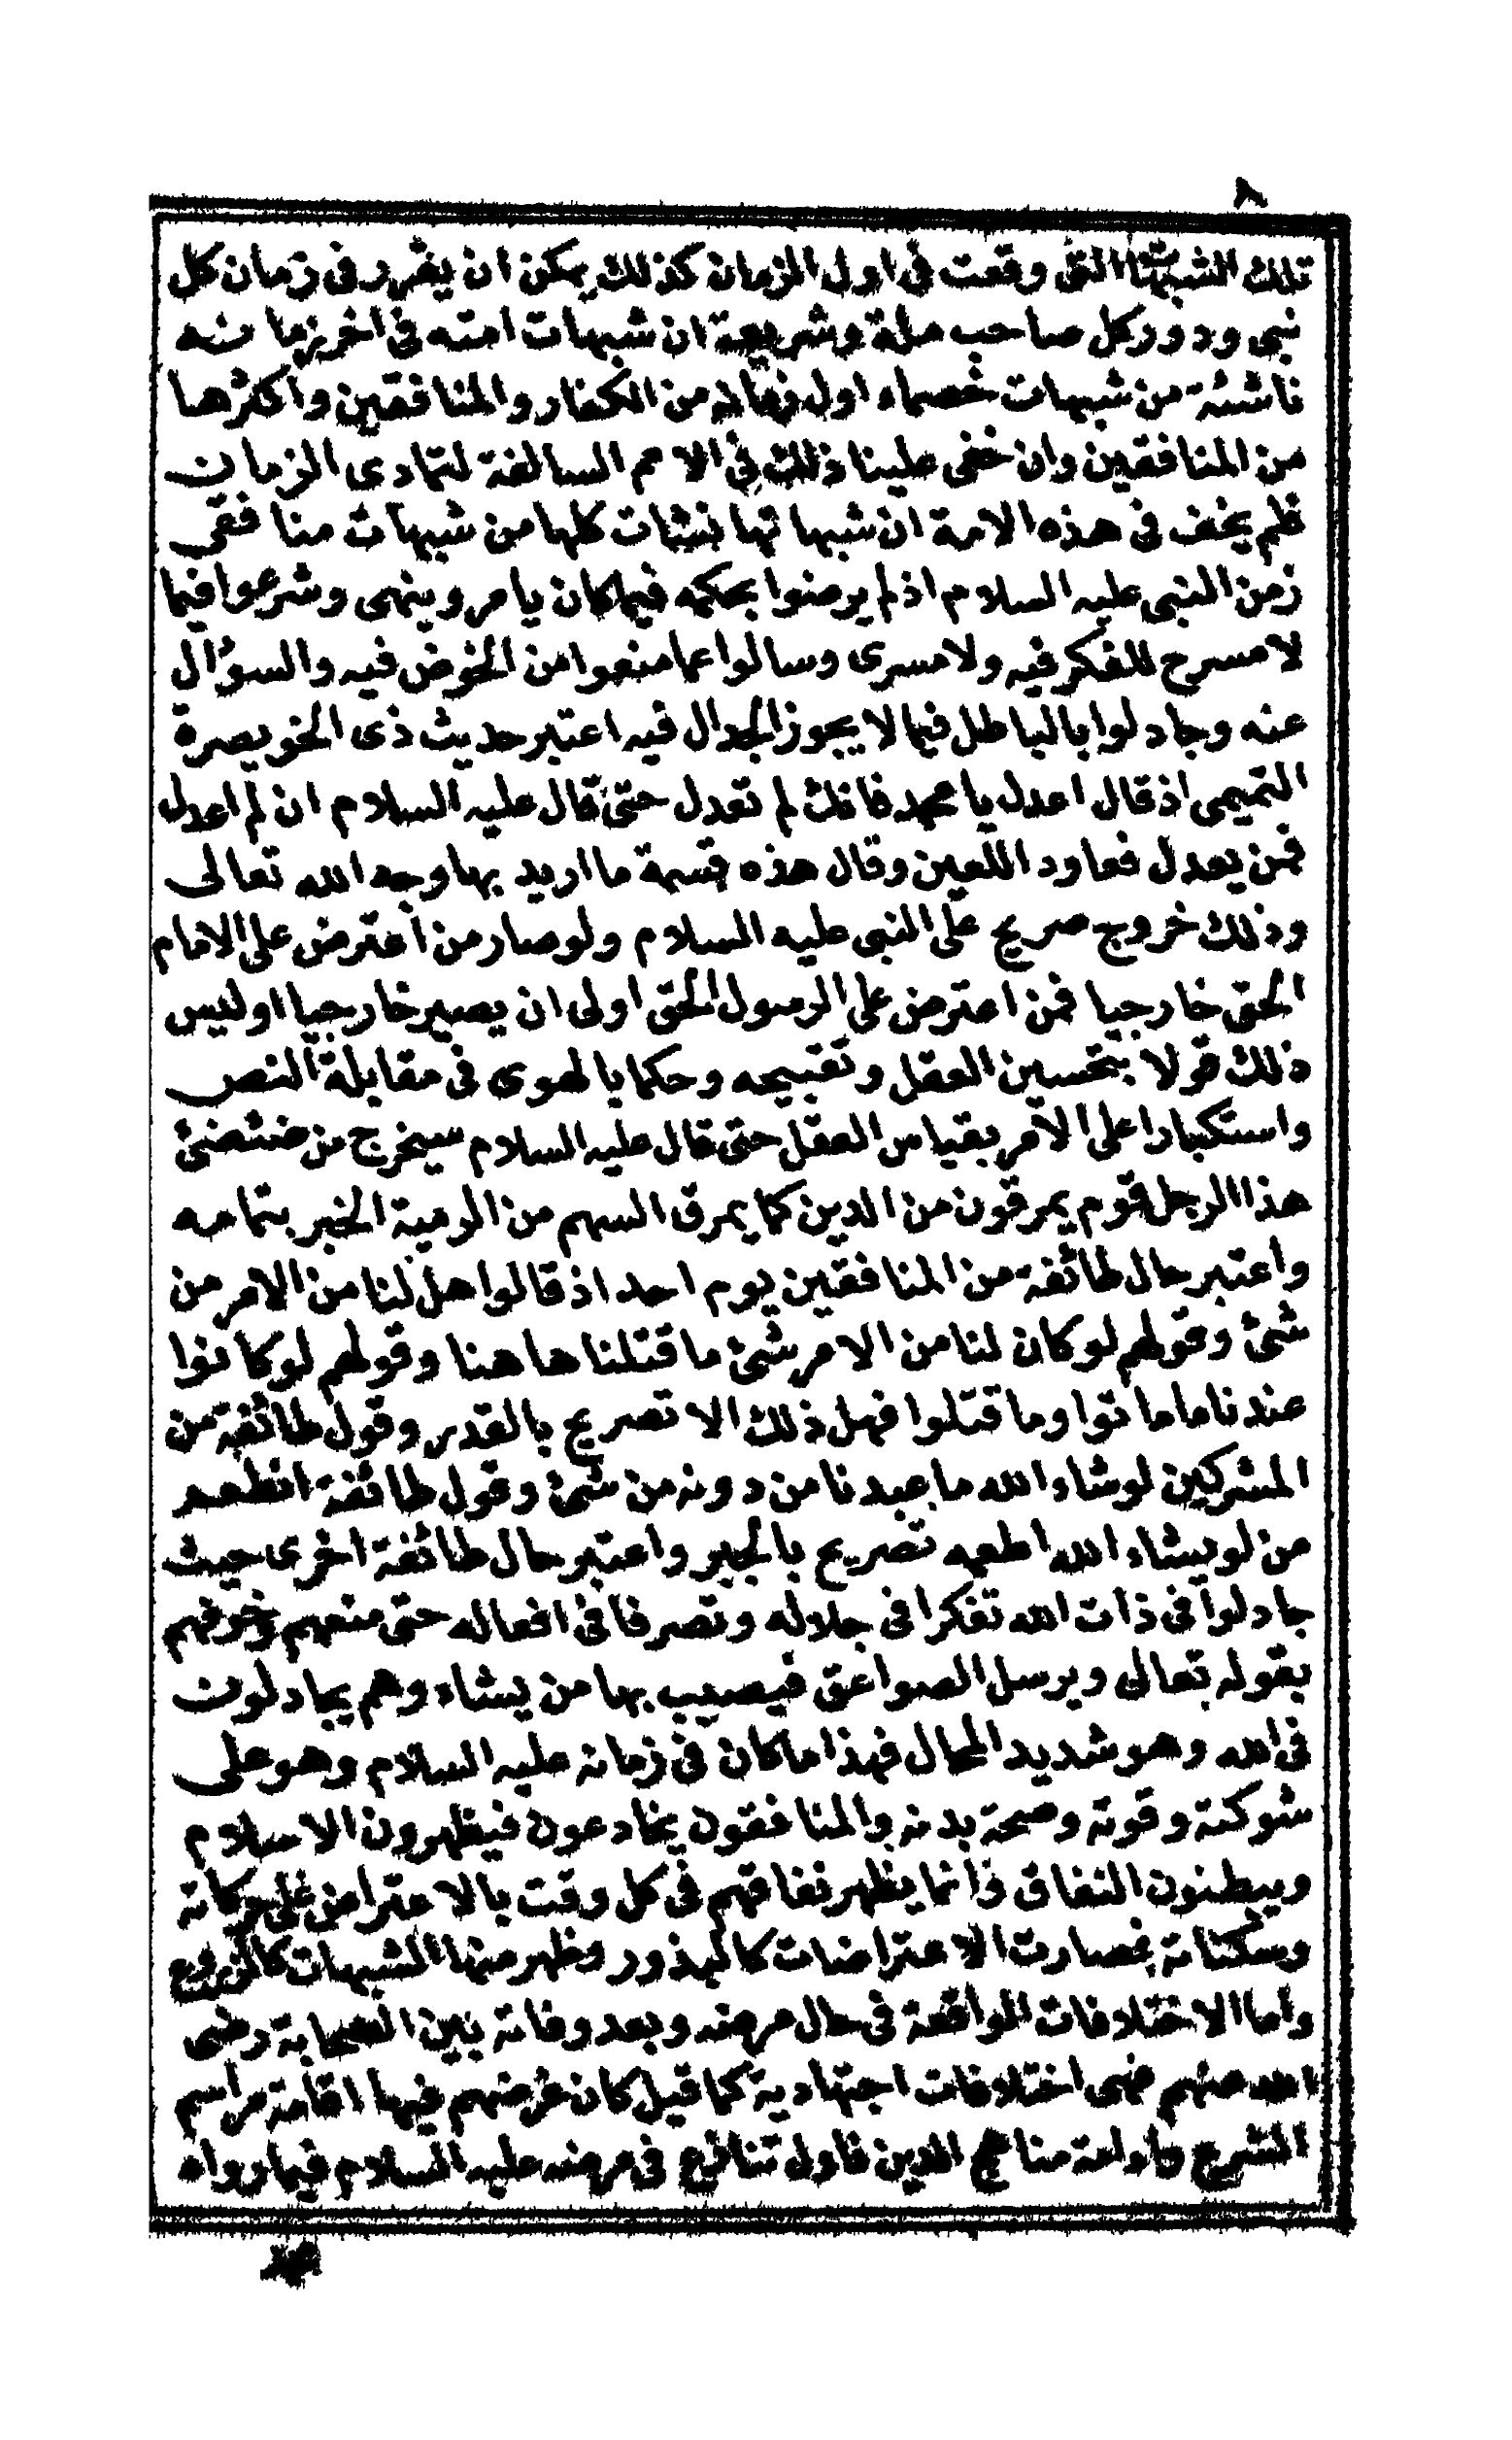 ٨
تلك الشبهات التى وقعت فى اول الزمان كذلك يمكن ان يقرر فى زمان كل
نبى ودور كل صاحب ملة وشريعة ان شبهات امته فى اخر زمانه
ناشئة من شبهات خصماء اول زمانه من الكفار والمنافقين واكثرها
من المنافقين وان خفى علينا ذلك فى الامم السالفة لتمادى الزمان
فلم يخف فى هذه الامة ان شبهاتها نشات كلها من شبهات منافقى
زمن النبى عليه السلام اذ لم يرضوا بحكمه فيما كان يامر وينهى وشرعوا فيما
لا مسرح للفكر فيه ولا مسرى وسالوا عما منعوا من الخوض فيه والسؤال
عنه وجادلوا بالباطل فيما لا يجوز الجدال فيه اعتبر حديث ذى الخويصرة
التميمى اذ قال اعدل يا محمد فانك لم تعدل حتى قال عليه السلام ان لم اعدل
فمن يعدل فعاود اللعين وقال هذه قسمة ما اريد بها وجه الله تعالى
وذلك خروج صريح على النبى عليه السلام ولو صار من اعترض على الامام
الحق خارجيا فمن اعترض على الرسول الحق اولى ان يصير خارجيا اوليس
ذلك قولا بتحسين العقل وتقبيحه وحكما بالهوى فى مقابلة النص
واستكبارا على الامر بقياس العقل حتى قال عليه السلام سيخرج من ضئضئ
هذا الرجل قوم يمرقون من الدين كما يمرق السهم من الرمية الخبر بتمامه
واعتبر حال طائفة من المنافقين يوم احد اذ قالوا هل لنا من الامر من
شئ وقولهم لو كان لنا من الامر شئ ما قتلنا هاهنا وقولهم لو كانوا
عندنا ما ماتوا وما قتلوا فهل ذلك الا تصريح بالقدر وقول طائفة من
المشركين لو شاء الله ما عبدنا من دونه من شئ وقول طائفة انطعم
من لو يشاء الله اطعمه تصريح بالجبر واعتبر حال طائفة اخرى حيث
جادلوا فى ذات الله تفكرا فى جلاله وتصرفا فى افعاله حتى منعهم وخوفهم
بقوله تعالى ويرسل الصواعق فيصيب بها من يشاء وهم يجادلون
فى الله وهو شديد المحال فهذا ما كان فى زمانه عليه السلام وهو على
شوكته وقوته وصحة بدنه والمنافقون يخادعون فيظهرون الاسلام
ويبطنون النفاق وانما يظهر نفاقهم فى كل وقت بالاعتراض على حركاته
وسكناته فصارت الاعتراضات كالبذور وظهر منها الشبهات كالزروع
واما الاختلافات الواقعة فى حال مرضه وبعد وفاته بين الصحابة رضى
الله عنهم فهى اختلافات اجتهادية كما قيل كان غرضهم فيها اقامة مراسم
الشرع وادامة مناهج الدين فاول تنازع فى مرضه عليه السلام فيما رواه